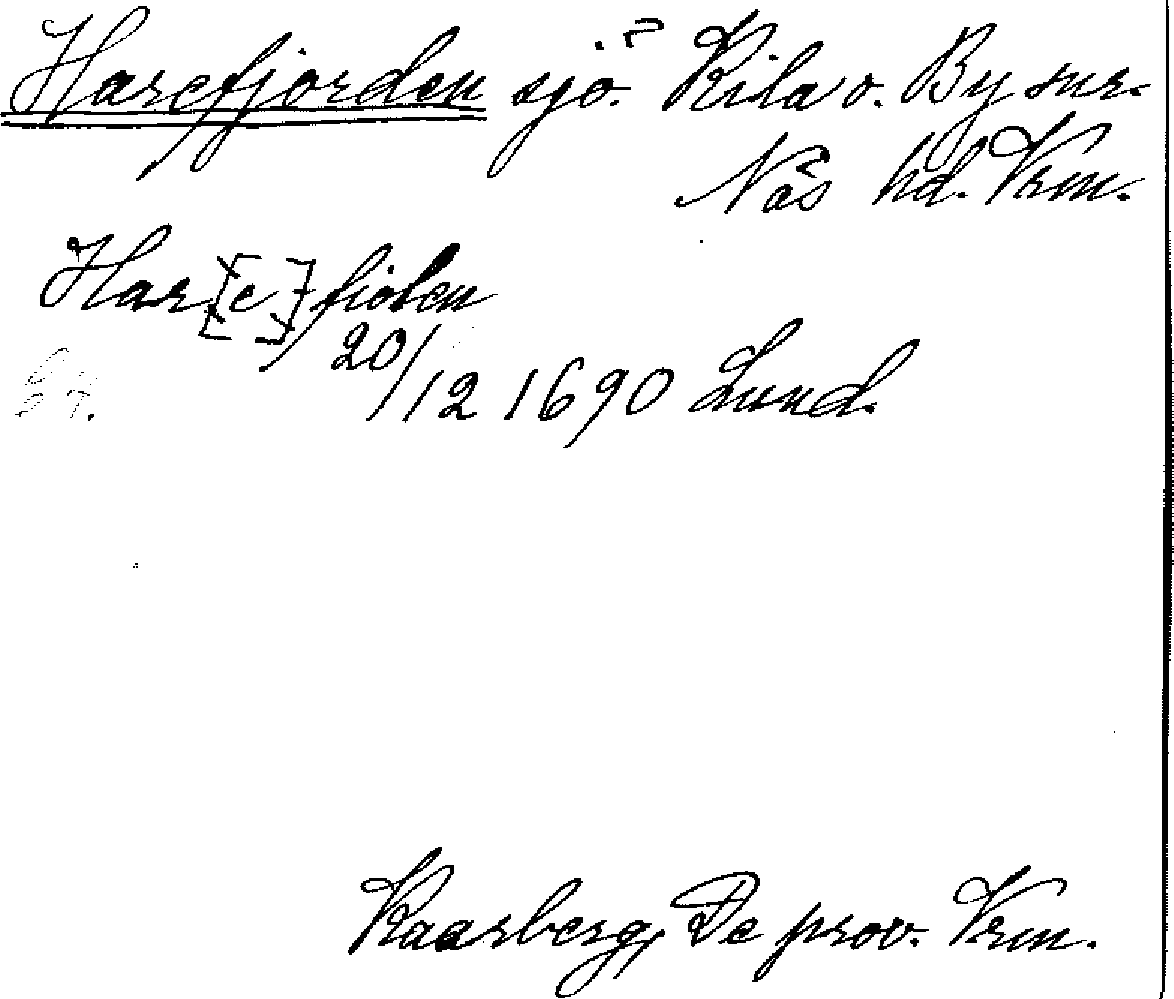 Harefjorden sjö. Kila o. By snr.
Näs hd. Vrm.
Har[e]fiolen
20/12 1690 Lund.
Kaarberg, De prov. Vrm.